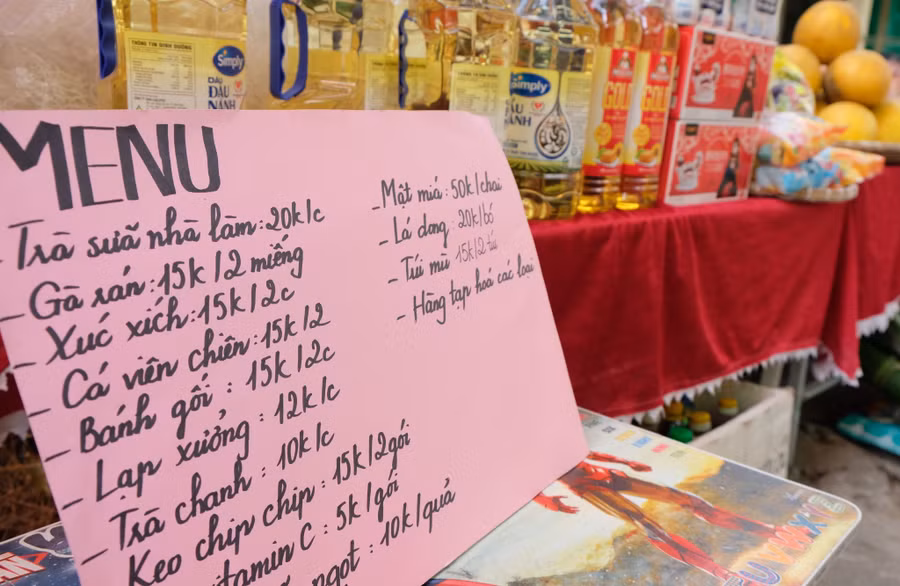 MENU
- Trà sữa nhà làm: 20k/c
- Gà rán: 15k/2 miếng
- Xúc xích: 15k/2c
- Cá viên chiên: 15k/2
- Bánh gối: 15k/2c
- Lạp xưởng: 12k/c
- Trà chanh: 10k/c
Kẹo chip chip: 15k/2gói
vitamin C: 5k/gói
ngọt: 10k/quả
- Mật mía: 50k/chai
- Lá dong: 20k/bó
- Túi mù 15k/2 túi
- Hàng tạp hoá các loại
THÔNG TIN DINH DƯỠNG
Simply
DẦU
ĐẬU
NÀNH
Simply
ĐẬU
NÀNH
GOLD
GOLD